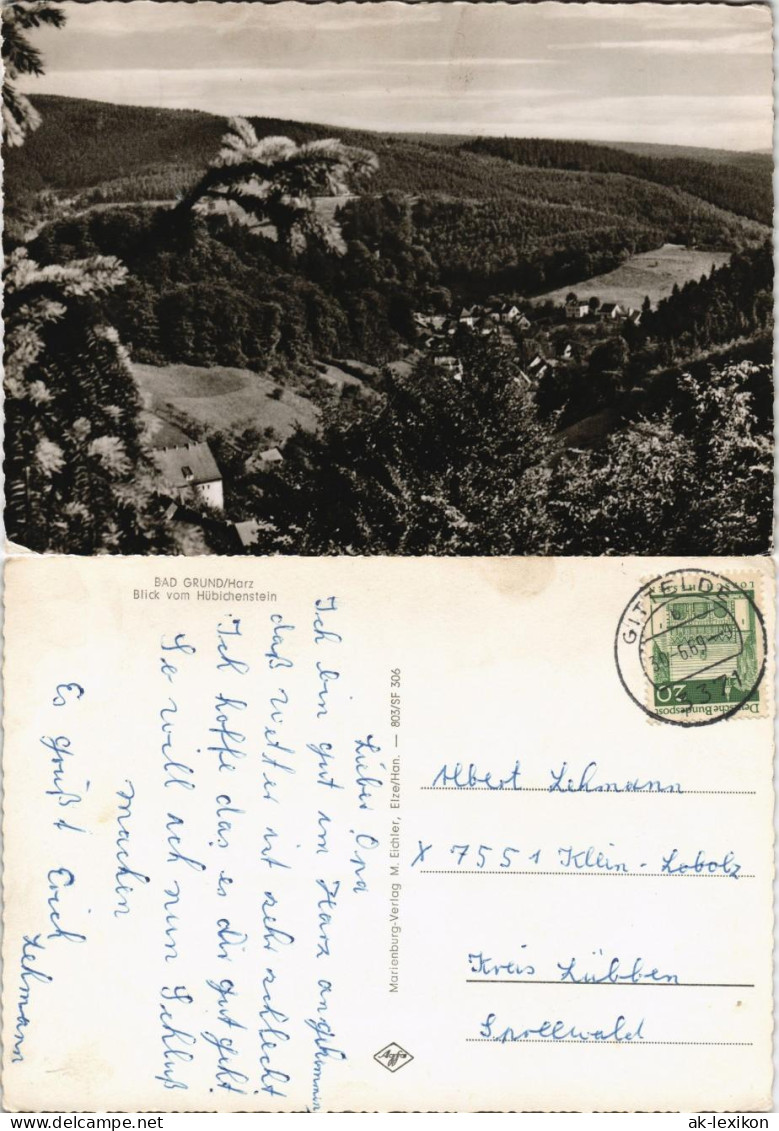 BAD GRUND/Harz
Blick vom Hübichenstein
Lüber Opa
Ich bin gut im Harz angekommin
daß Wetter ist sehr schlecht
Ich hoffe das es Dir gut geht.
So will ich nun Schluß
machen
Es grüßt Erich
Lehmann
Marienburg-Verlag M. Eichler, Elze/Han. — 803/SF 306
Agfa
GITTELDE
30.-6.69
3371
20
Deutsche Bundespost
Albert Lehmann
X 7551 Klein-Lobolz
Kreis Lübben
Spreewald
www.ansichtskarten-lexikon.de
ak-lexikon.com